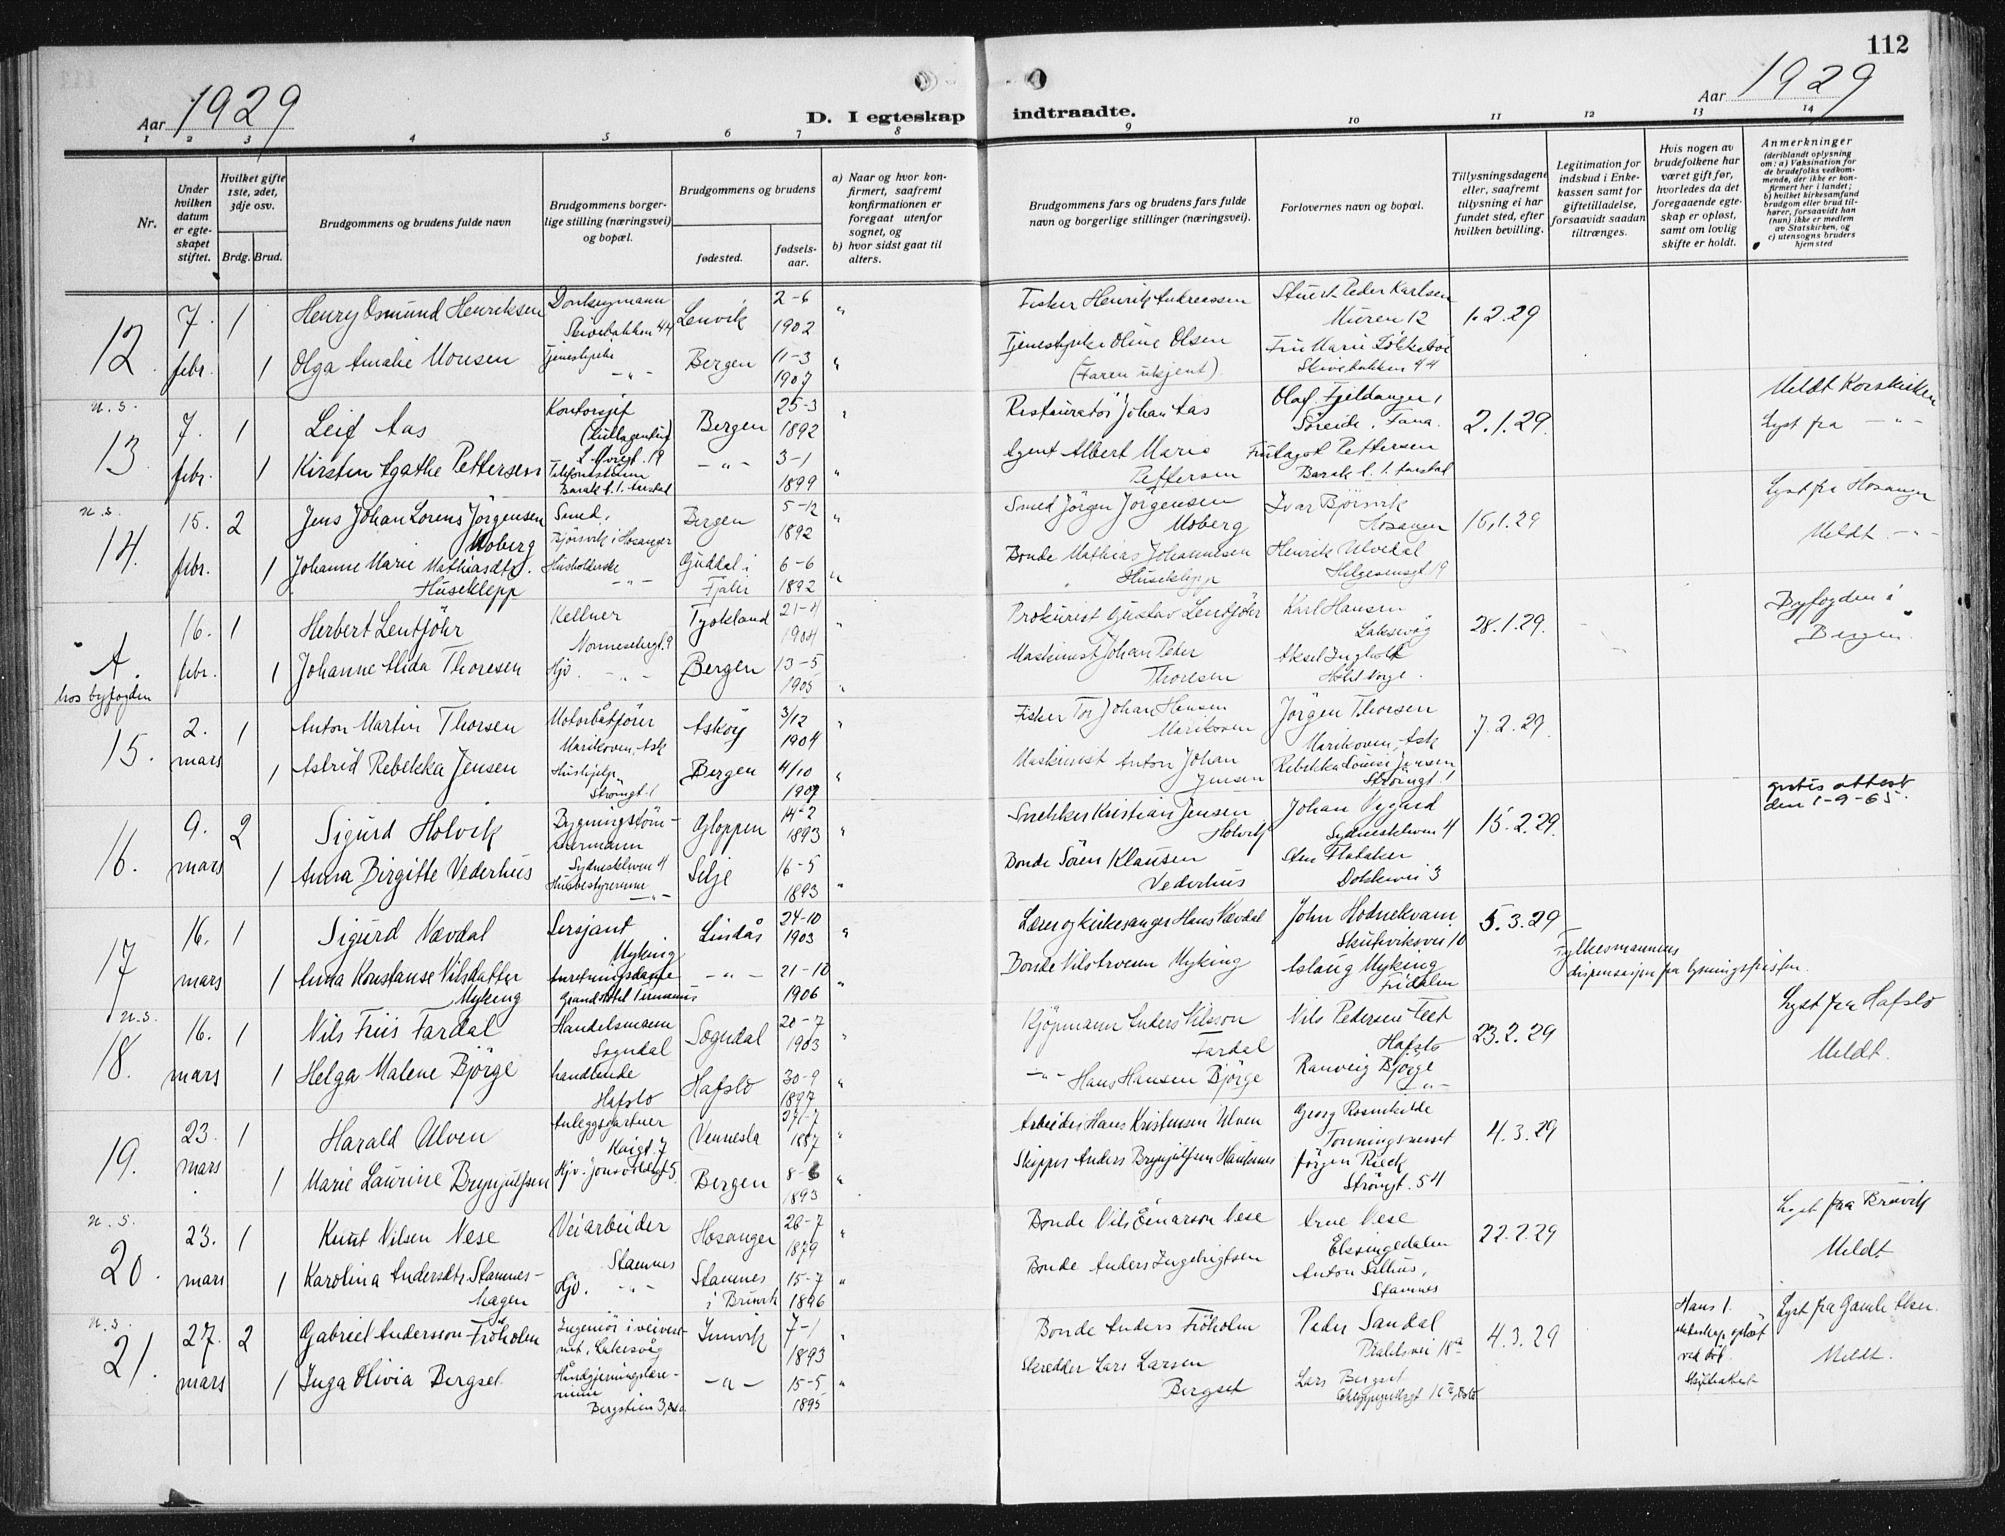 112
Aar 1929
D. I egteskap indtraadte.
Aar 1929
1 2 3 4 5 6 7 8 9 10 11 12 13 14
Nr.
Under hvilken datum er egteskapet stiftet.
Hvilket gifte 1ste, 2det, 3dje osv.
Brdg. Brud.
Brudgommens og brudens fulde navn
Brudgommens borgerlige stilling (næringsvei) og bopæl.
Brudgommens og brudens
fødested.
fødselsaar.
a) Naar og hvor konfirmert, saafremt konfirmationen er foregaat utenfor sognet, og
b) hvor sidst gaat til alters.
Brudgommens fars og brudens fars fulde navn og borgerlige stillinger (næringsvei).
Forlovernes navn og bopæl.
Tillysningsdagene eller, saafremt tillysning ei har fundet sted, efter hvilken bevilling.
Legitimation for indskud i Enkekassen samt for giftetilladelse, forsaavidt saadan tiltrænges.
Hvis nogen av brudefolkene har været gift før, hvorledes da det foregaaende egteskap er opløst, samt om lovlig skifte er holdt.
Anmerkninger
(deriblandt oplysning om: a) Vaksination for de brudefolks vedkommende, der ikke er konfirmert her i landet; b) hvilket kirkesamfund brudgom eller brud tilhører, forsaavidt han (hun) ikke er medlem av Statskirken, og c) utensogns bruders hjemsted
12 7. febr. 1 Henry Osmund Henriksen Skivebakken 44 Lenvik 2-6 1902 " Fisker Henrik Andreassen Stuert Peder Karlsen Muren 12 1.2.29
1 Olga Amalie Monsen Tjenestepike -"- Bergen 11-3 1907 " Tjenestepike Oline Olsen (Faren ukjent) Fru Marie Skivebakken 44
u.s.
13 7. febr. 1 Leif Aas Kontorsjef Bergen 25-3 1892 " Restauratør Johan Aas Olaf Fjeldanger, Søreide, Fana. 2.1.29 Meldt Korskirken
1 Kirsten Agathe Pettersen -"- 3-1 1899 " Agent Albert Pettersen Pettersen Lyst fra -"-
u.s.
14. 15. febr. 2 Jens Johan Lorens Jörgensen Moberg Smed, Björsvik i Hosanger Bergen 5-12 1892 " Smed Jörgen Jörgensen Moberg Ivar Björsvik Hosanger 15.1.29 Lyst fra Hosanger
1 Johanne Marie Mathiasdtr. Huseklepp Husholderske -"- Guddal i Fjaler 6-6 1892 " Bonde Mathias Johannesen Huseklepp Henrik Ulvedal Helgesensgt 19 Meldt -"-
A. hos byfogden 16. febr. 1 Herbert Lentföhr Kellner Nonnesetergt. 9 Tyskland 21-4 1904 " Prokurist Gustav Lentföhr Karl Hansen Laksevåg 28.1.29. Byfogden i Bergen.
1 Johanne Alida Thoresen Hjv. -"- Bergen 13-5 1905 " Maskinist Johan Peder Thoresen Aksel
15. 2. mars 1 Anton Martin Thorsen Motorbåtförer Marikoven, Ask Askøy 3/12 1904 " Fisker Tor Johan Hansen Marikoven Jörgen Thorsen Marikoven, Ask 7.2.29.
1 Astrid Rebekka Jensen Hushjelp Strömgt. 1 Bergen 4/10 1907 " Maskinist Anton Johan Jensen Rebekka Louise Jensen Strömgt 1
gratis attest den 1-9-65.
16. 9. mars 2 Sigurd Holvik Bygningstömmermann Sydneskleven 4 Gloppen 14-2 1893 " Snekker Kristian Jensen Holvik Johan Nygård Sydneskleven 4 15.2.29.
1 Anna Birgitte Vederhus Husbestyrerinne -"- Selje 16-5 1893 " Bonde Sören Klausen Vederhus Sten Flataker Dokkevei 3
17 16. mars 1 Sigurd Vævdal Sersjant Myking Lindås 24-10 1903 " Lærer og kirkesanger Hans Vævdal John Hodnekvam Skuteviksvei 10 5.3.29 Fylkesmannens dispensasjon fra lysningsfristen.
1 Anna Konstanse Nilsdatter Myking Anretningsdame Grand Hotel Terminus -"- 21-10 1906 " Bonde Nils Myking Aslaug Myking Fridalen
u.s.
18. 16. mars 1 Nils Friis Fardal Handelsmann Sogndal Sogndal 20-7 1903 " Kjöpmann Anders Nilsson Fardal Nils Pedersen Teet Hafslo 23.2.29 Lyst fra Hafslo
1 Helga Malene Björge handlende Hafslo Hafslo 30-9 1897 " -"- Hans Hansen Björge Ranveig Björge -"- Meldt.
19. 23. mars 1 Harald Ulven Anleggsgartner Kaigt. 7 Vennesla 27-7 1887 " Arbeider Hans Kristensen Ulven Georg Rosenkilde 4.3.29
1 Marie Laurine Brynjulfsen Hjv. Bergen 8-6 1893 " Skipper Anders Brynjulfsen Jørgen Rieck Strömgt. 54
u.s.
20. 23. mars 1 Knut Nilsen Nese Veiarbeider Stamnes Hosanger 26-7 1879 " Bonde Nils Einarson Nese Arne Nese Eksingedalen 22.2.29 Lyst fra Bruvik
1 Karolina Andersdtr. Stamneshagen Hjv. -"- Stamnes i Bruvik 15-7 1896 " Bonde Anders Ingebrigtsen Anton Salhus, Stamnes Meldt
u.s.
21. 27. mars 2 Gabriel Andersson Fröholm Ingeniör i veivesenet, Laksevåg Innvik 7-1 1893 " Bonde Anders Fröholm Peder Sandal 4.3.29 Hans 1. ekteskap oplöst ved död. Skifteattest Lyst fra Gamle Aker.
1 Inga Olivia Bergset Håndgjerningslærerinne Bergstien 3, Oslo -"- 15-5 1895 " Skredder Lars Larsen Bergset Lars Bergset Meldt.